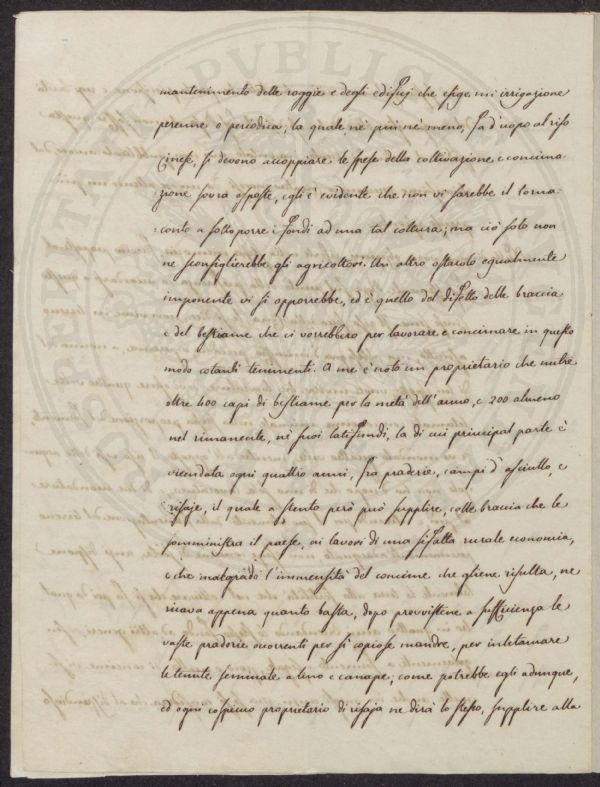 mantenimento delle roggie e degli edifizj che esige un'irrigazione
perenne o periodica, la quale nè più nè meno, fa d'uopo al riso
Cinese, si devono accoppiare le spese della coltivazione e concima-
zione sovra esposte, egli è evidente che non vi sarebbe il torna-
conto a sottoporre i fondi ad una tal coltura; ma ciò solo non
ne sconsiglierebbe gli agricoltori. Un altro ostacolo egualmente
imponente vi si opporrebbe, ed è quello del difetto delle braccia
e del bestiame che ci vorrebbero per lavorare e concimare in questo
modo cotanti tenimenti. A me è noto un proprietario che nutre
oltre 400 capi di bestiame per la metà dell'anno, e 200 almeno
nel rimanente, nè suoi latifundi, la di cui principal parte è
vicendata ogni quattro anni, fra praderie, campi d'asciutto, e
risaje, il quale a stento però può supplire, colle braccia che le
somministra il paese, ai lavori di una sifatta rurale economia,
e che malgrado l'immensità del concime che gliene risulta, ne
ricava appena quanto basta, dopo provvistene a sufficienza le
vaste praderie occorrenti per sì copiose mandre, per inletamare
le tenute seminate a lino e canape; come potrebbe egli adunque,
ed ogni cospicuo proprietario di risaja ne dirà lo stesso, supplire alla